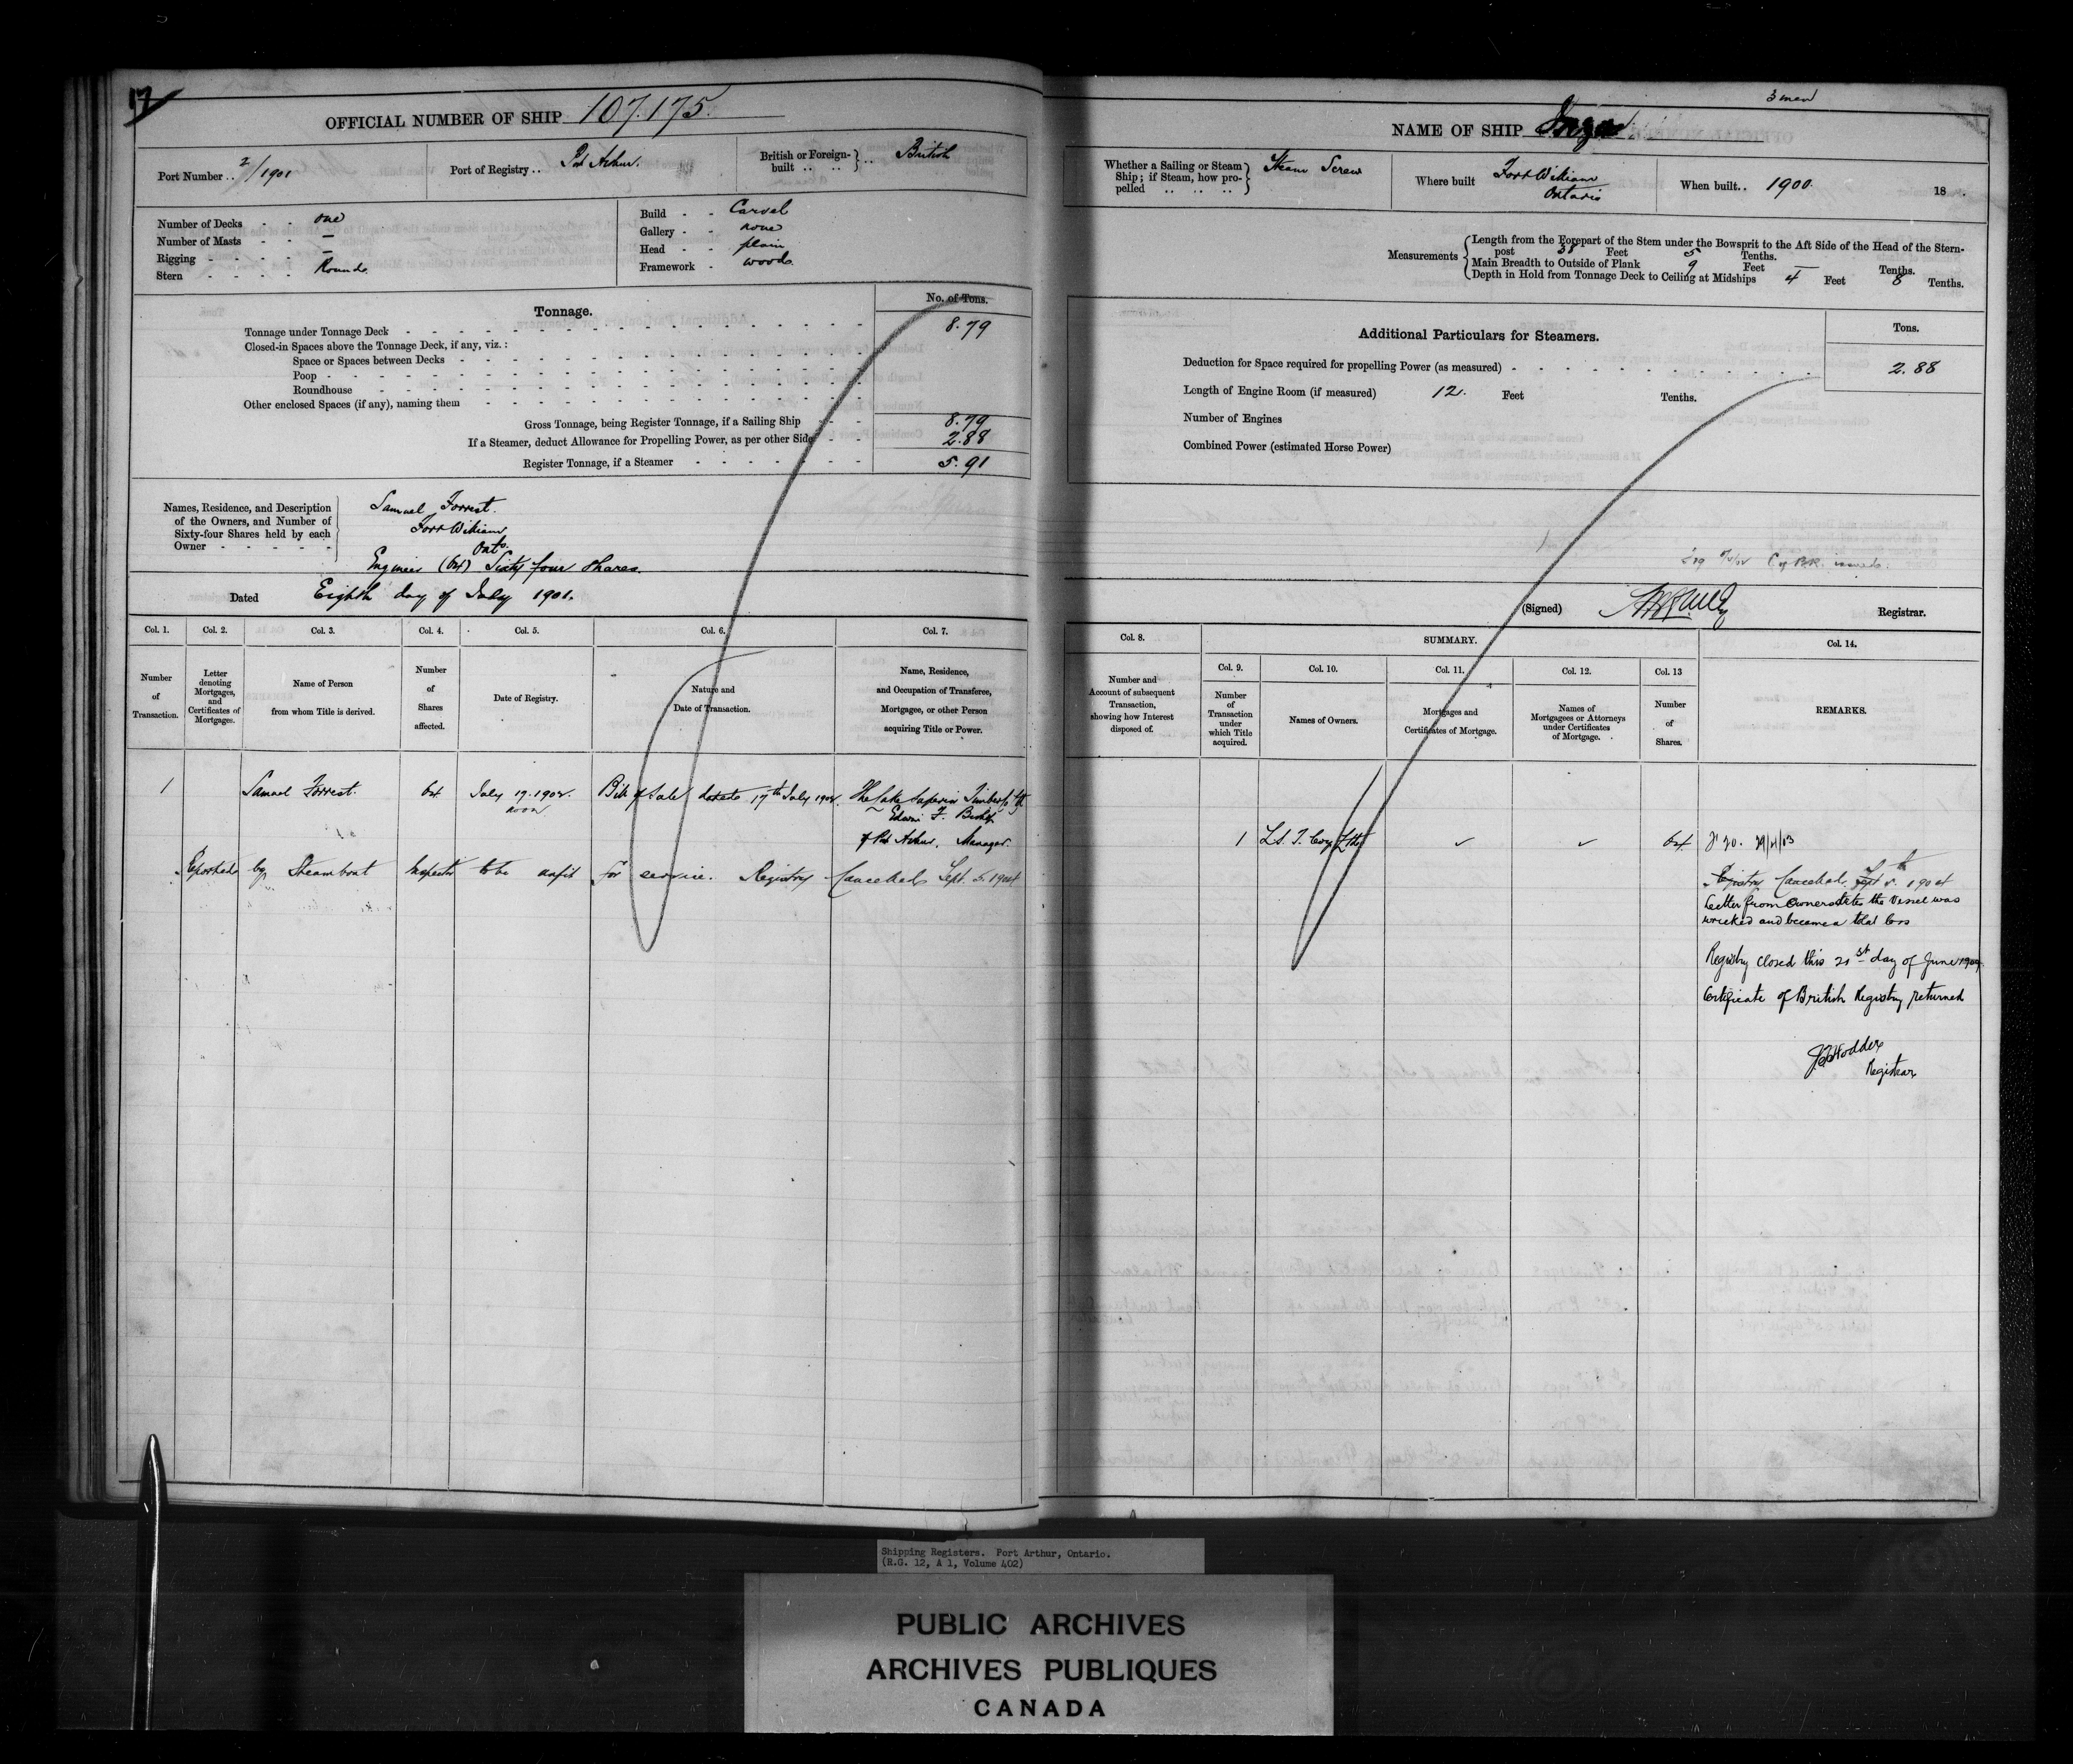 17
OFFICIAL NUMBER OF SHIP 107.175.
Port Number .. 2/1901
Port of Registry .. Port Arthur.
British or Foreign-built .. .. British
Number of Decks - - one
Number of Masts - - —
Rigging - - - - —
Stern - - - - Round
Build - - Carvel
Gallery - - none
Head - - plain
Framework - wood
Tonnage.
No. of Tons.
Tonnage under Tonnage Deck 8.79
Closed-in Spaces above the Tonnage Deck, if any, viz.:
Space or Spaces between Decks
Poop
Roundhouse
Other enclosed Spaces (if any), naming them
Gross Tonnage, being Register Tonnage, if a Sailing Ship 8.79
If a Steamer, deduct Allowance for Propelling Power, as per other Side 2.88
Register Tonnage, if a Steamer 5.91
Names, Residence, and Description
of the Owners, and Number of
Sixty-four Shares held by each
Owner
Samuel Forrest.
Fort William
Ont.
Engineer (64) Sixty four Shares.
Dated Eighth day of July 1901.
Col. 1. Col. 2. Col. 3. Col. 4. Col. 5. Col. 6. Col. 7.
Number of Transaction.
Letter denoting Mortgages, and Certificates of Mortgages.
Name of Person from whom Title is derived.
Number of Shares affected.
Date of Registry.
Nature and Date of Transaction.
Name, Residence, and Occupation of Transferee, Mortgagee, or other Person acquiring Title or Power.
1 Samuel Forrest. 64 July 19. 1902. Bill of Sale dated 17th July 1902. The Lake Superior Timber Co
noon Edwin F.
of Port Arthur, Manager.
Reported by Steamboat Inspector to be unfit for service. Registry Cancelled Sept. 5. 1904
3 men
NAME OF SHIP Inga
Whether a Sailing or Steam Ship; if Steam, how propelled Steam Screw
Where built Fort William
Ontario
When built.. 1900. 18 .
Measurements
Length from the Forepart of the Stem under the Bowsprit to the Aft Side of the Head of the Stern-
post 38 Feet 5 Tenths.
Main Breadth to Outside of Plank 9 Feet — Tenths.
Depth in Hold from Tonnage Deck to Ceiling at Midships 4 Feet 8 Tenths.
Additional Particulars for Steamers.
Tons.
Deduction for Space required for propelling Power (as measured) 2.88
Length of Engine Room (if measured) 12. Feet Tenths.
Number of Engines
Combined Power (estimated Horse Power)
issued.
(Signed) Registrar.
Col. 8. SUMMARY. Col. 14.
Col. 9. Col. 10. Col. 11. Col. 12. Col. 13
Number and Account of subsequent Transaction, showing how Interest disposed of.
Number of Transaction under which Title acquired.
Names of Owners.
Mortgages and Certificates of Mortgage.
Names of Mortgagees or Attorneys under Certificates of Mortgage.
Number of Shares.
REMARKS.
1 L.S. T. Coy Ltd ✓ ✓ 64
Registry Cancelled Sept 5th 1904
Letter from Owner states the Vessel was
wrecked and became a total loss
Registry closed this 21st day of June
Certificate of British Registry returned
Hodder
Registrar
Shipping Registers. Port Arthur, Ontario.
(R.G. 12, A 1, Volume 402)
PUBLIC ARCHIVES
ARCHIVES PUBLIQUES
CANADA